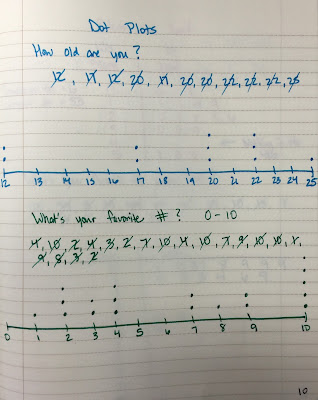 Dot Plots
How old are you?
12, 17, 12, 20, 17, 20, 20, 22, 22, 22, 25
12 13 14 15 16 17 18 19 20 21 22 23 24 25
What's your favorite #? 0-10
4, 10, 2, 4, 3, 2, 7, 10, 4, 10, 7, 9, 10, 10, 1,
9, 8, 3, 2
0 1 2 3 4 5 6 7 8 9 10
10